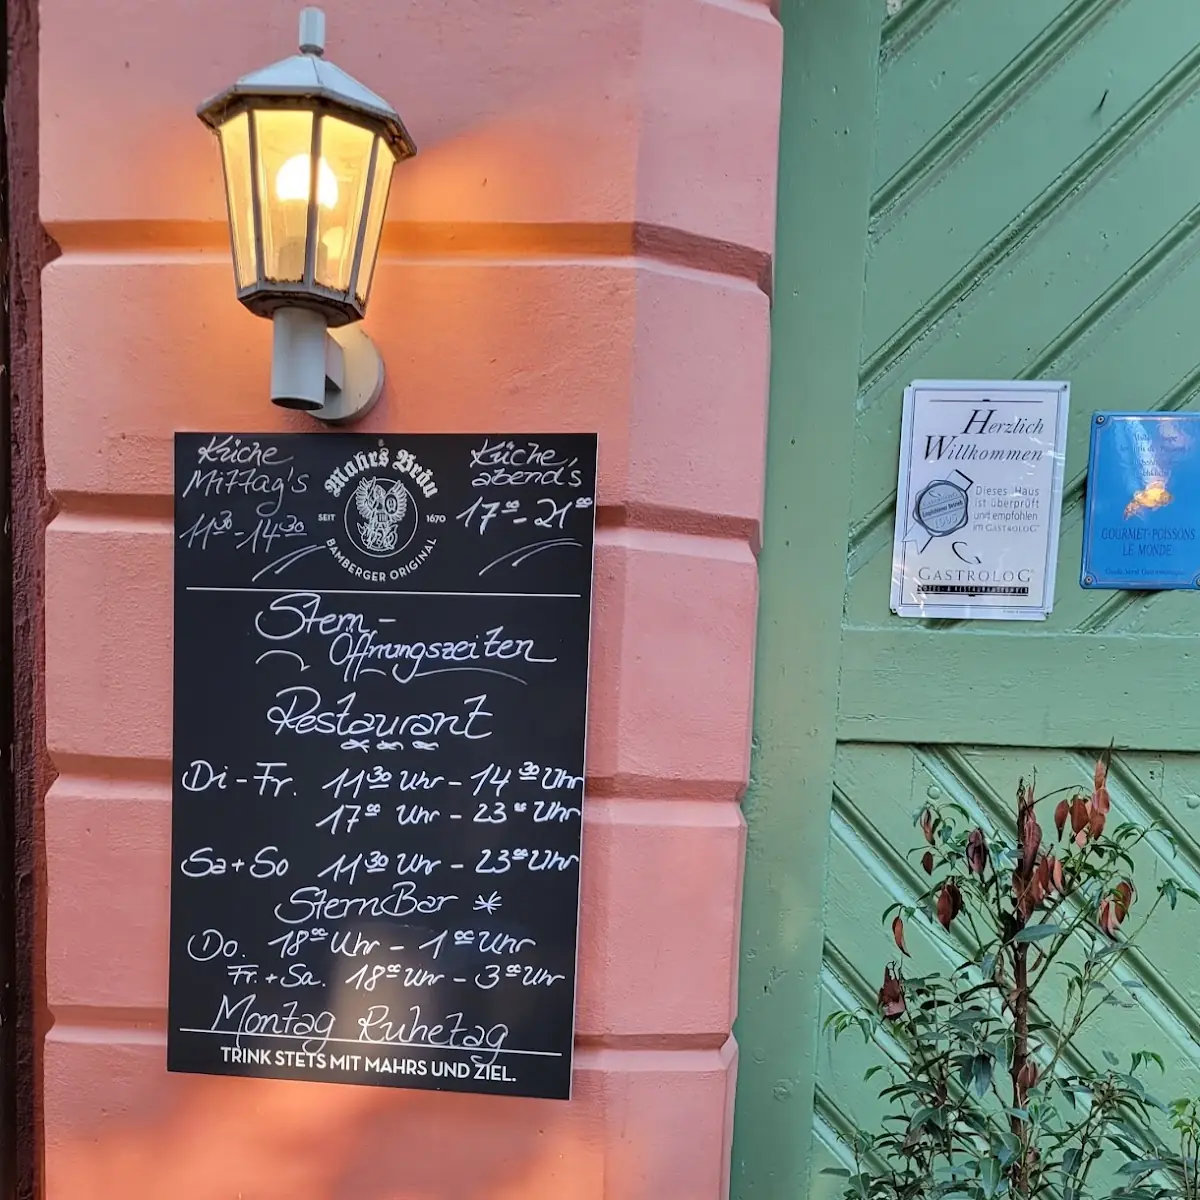 Küche
Mittag's
11³⁰-14³⁰
Mahr's Bräu
SEIT 1670
BAMBERGER ORIGINAL
Küche
abend's
17⁰⁰-21⁰⁰
Stern-
Öffnungszeiten
Restaurant
Di-Fr. 11³⁰ Uhr - 14³⁰ Uhr
17⁰⁰ Uhr - 23⁰⁰ Uhr
Sa+So 11³⁰ Uhr - 23⁰⁰ Uhr
SternBar *
Do. 18⁰⁰ Uhr - 1⁰⁰ Uhr
Fr.+Sa. 18⁰⁰ Uhr - 3⁰⁰ Uhr
Montag Ruhetag
TRINK STETS MIT MAHRS UND ZIEL.
Herzlich
Willkommen
Dieses Haus
ist überprüft
und empfohlen
im GASTROLOG
GASTROLOG
GOURMET-POISSONS
LE MONDE